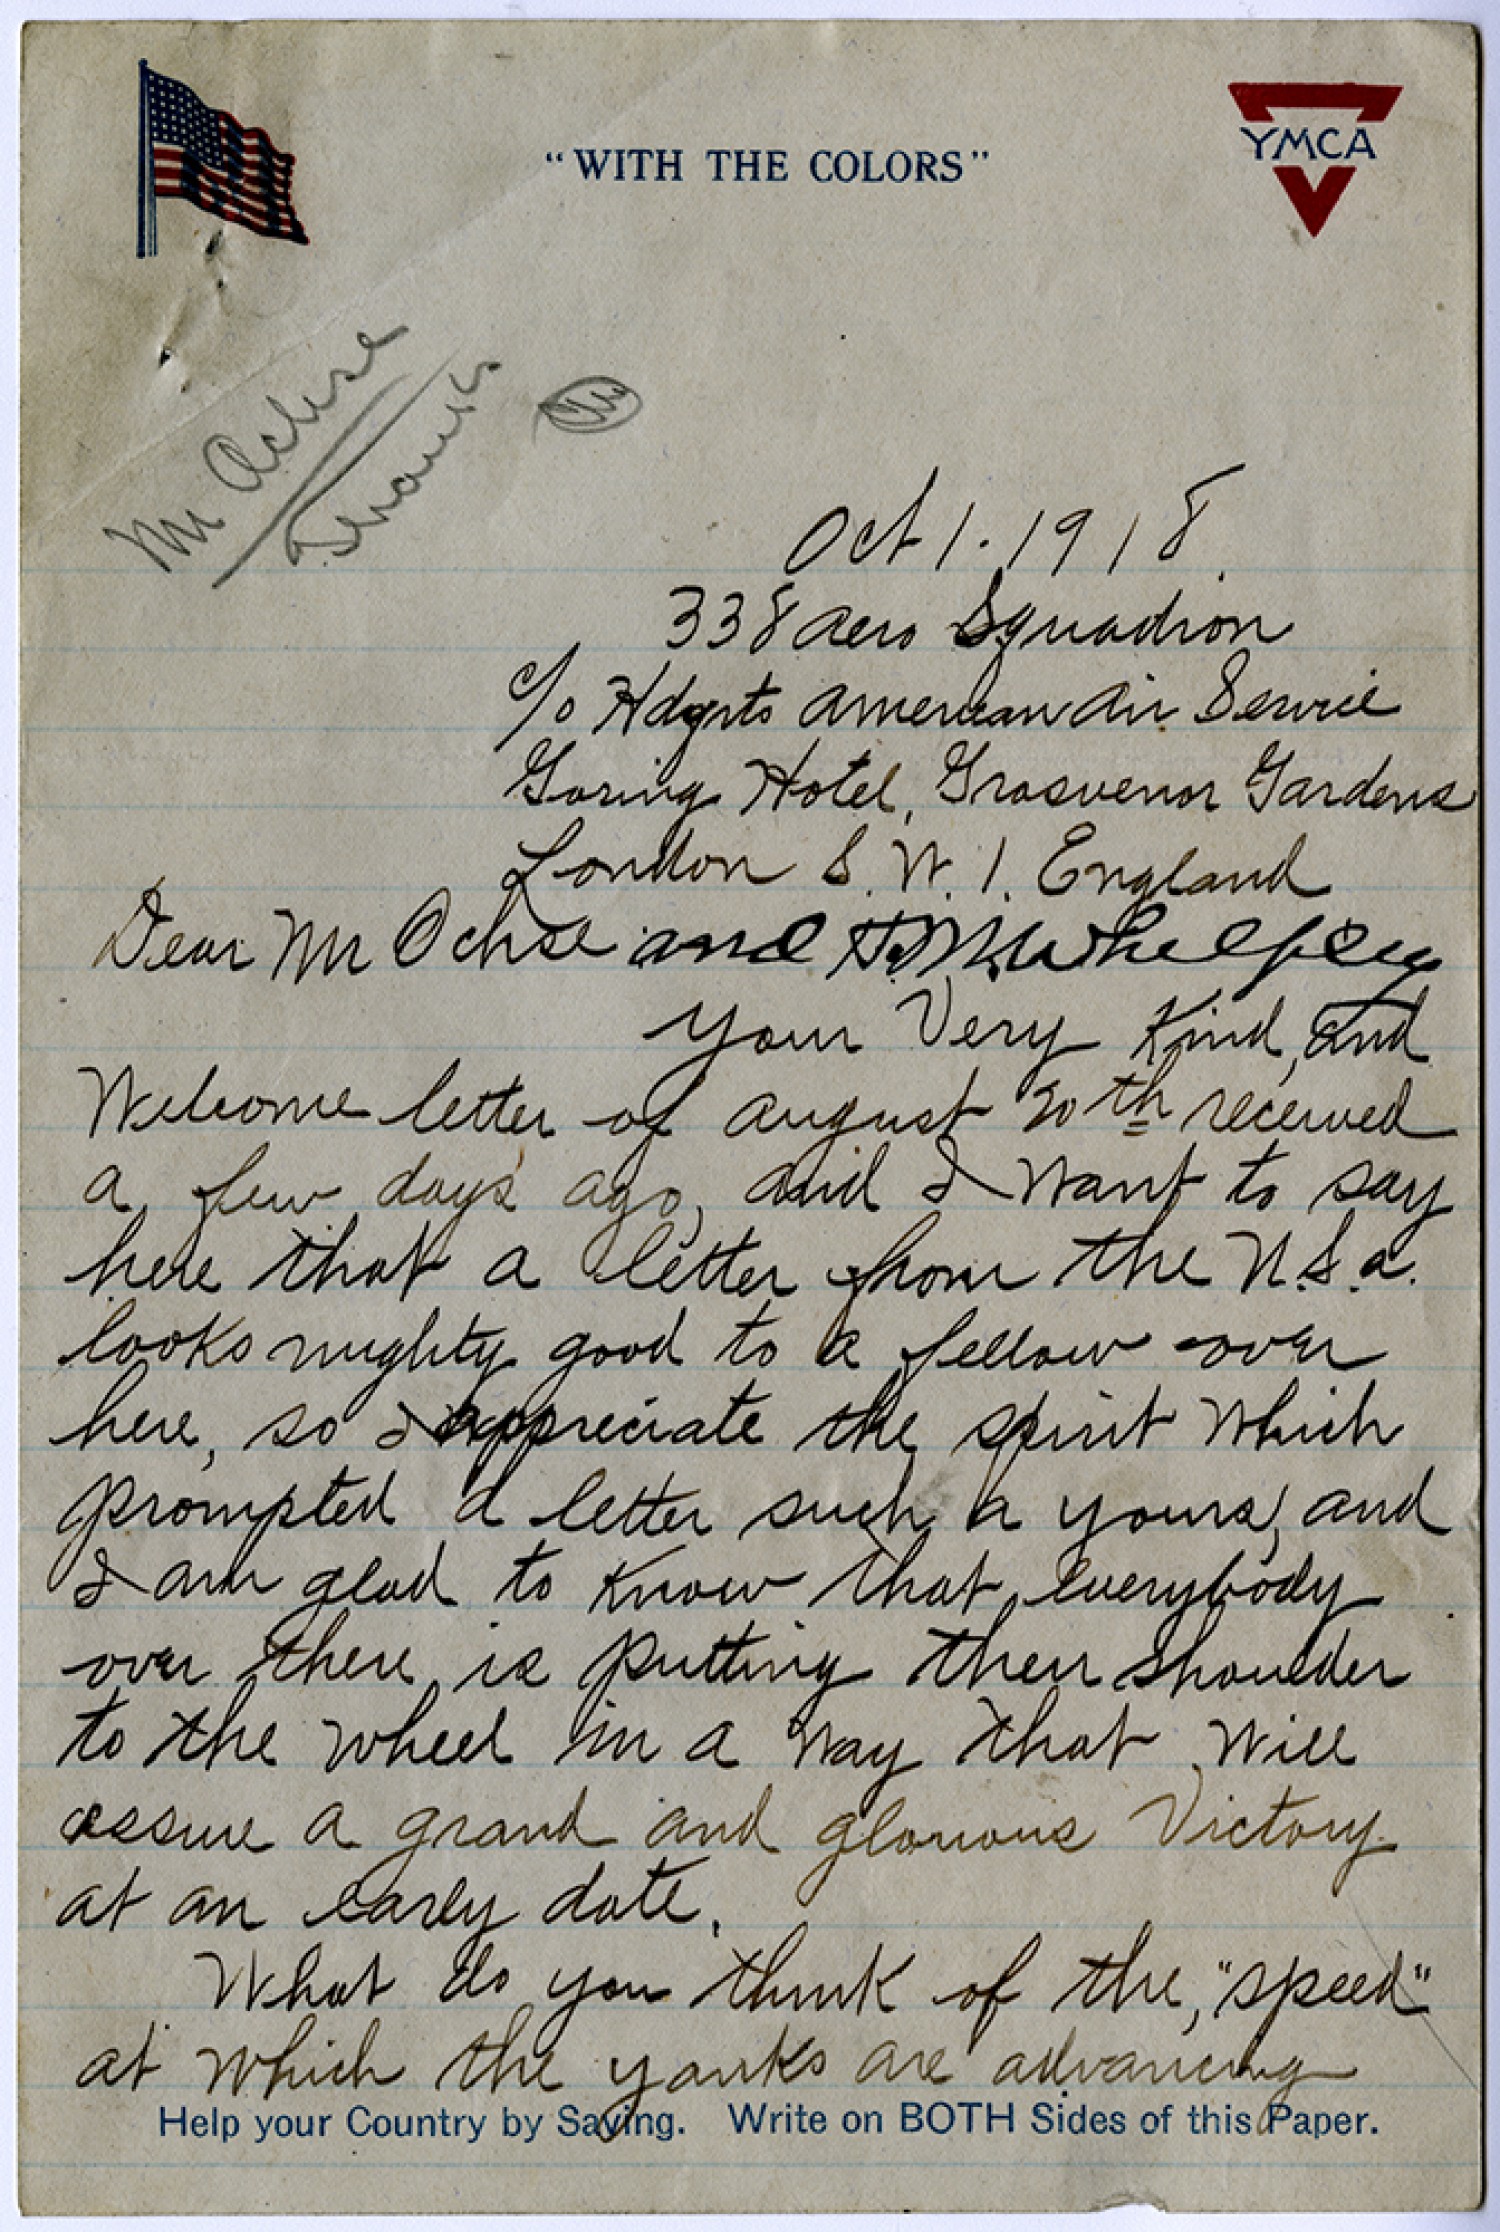 "WITH THE COLORS"
YMCA
Mr Ochse
Oct 1. 1918.
338 Aero Squadron
c/o Hdqrts American Air Service
Goring Hotel, Grosvenor Gardens
London S.W.1. England
Dear Mr Ochse and Whelpley
Your Very Kind, and
Welcome letter of August 20th received
a few days ago, and I want to say
here that a letter from the U.S.A.
looks mighty good to a fellow over
here, so I appreciate the spirit which
prompted a letter such a yours, and
I am glad to know that everybody
over there is putting their shoulder
to the wheel in a way that will
assure a grand and glorious Victory
at an early date.
What do you think of the, "speed"
at which the yanks are advancing
Help your Country by Saving. Write on BOTH Sides of this Paper.